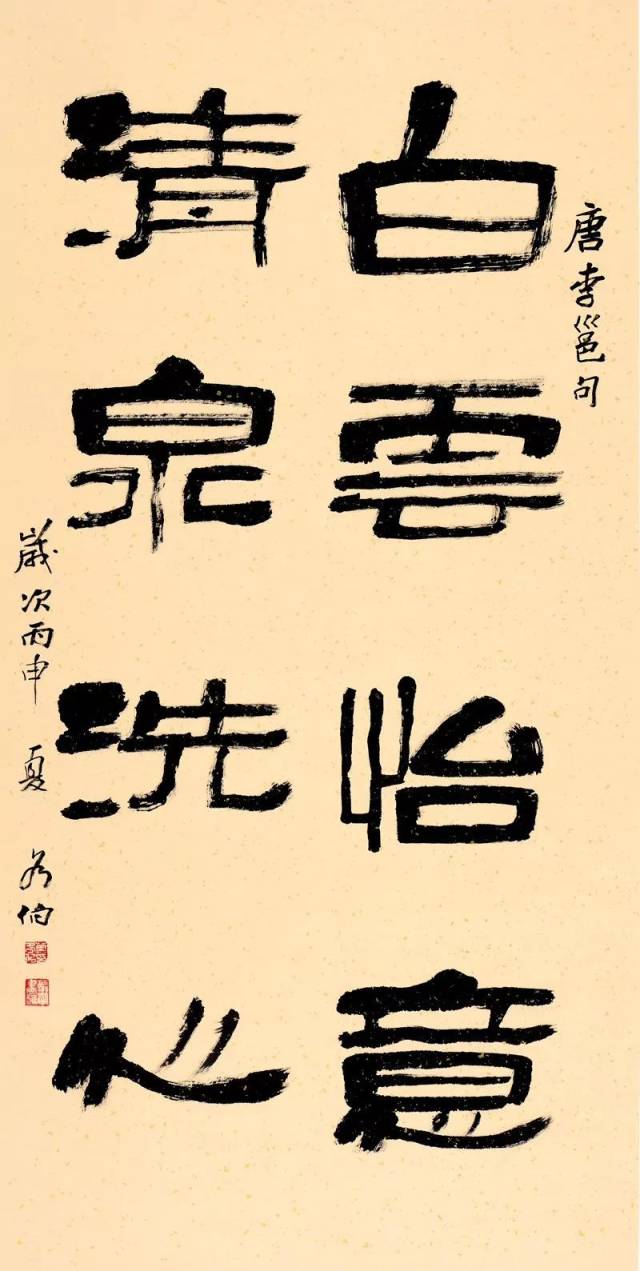 唐李邕句
白雲怡意
清泉洗心
歲次丙申 夏